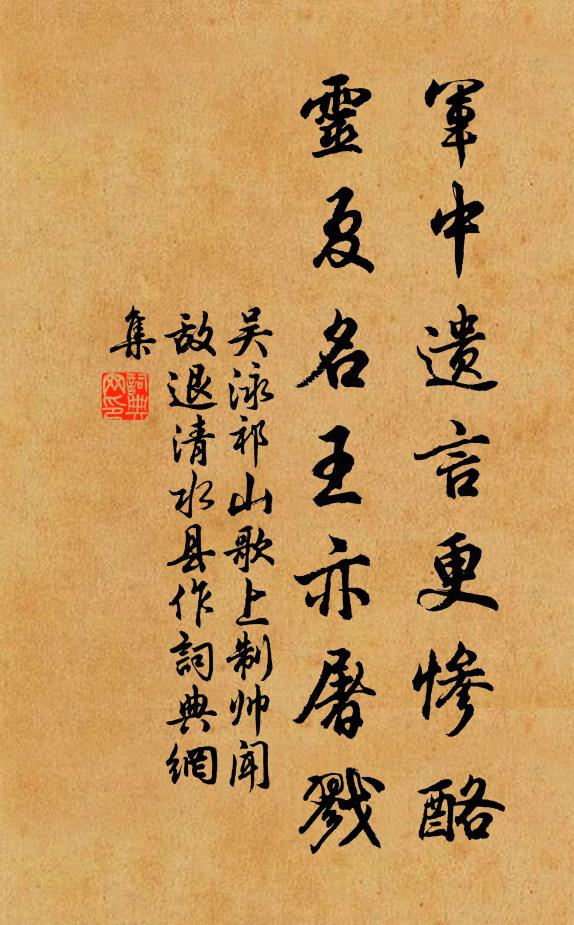 軍中遺言更惨酷
靈夏名王亦屠戮
吴泳祁山歌上制帅闻
敌退清水县作詞典網
集
詞典
网印